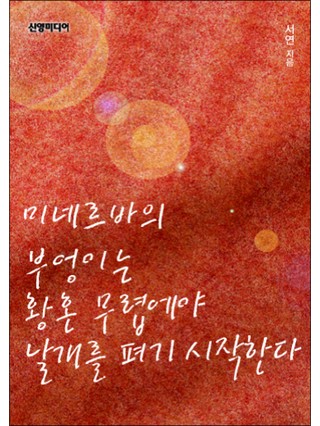 신영미디어
서연 지음
미네르바의
부엉이는
황혼 무렵에야
날개를 펴기 시작한다